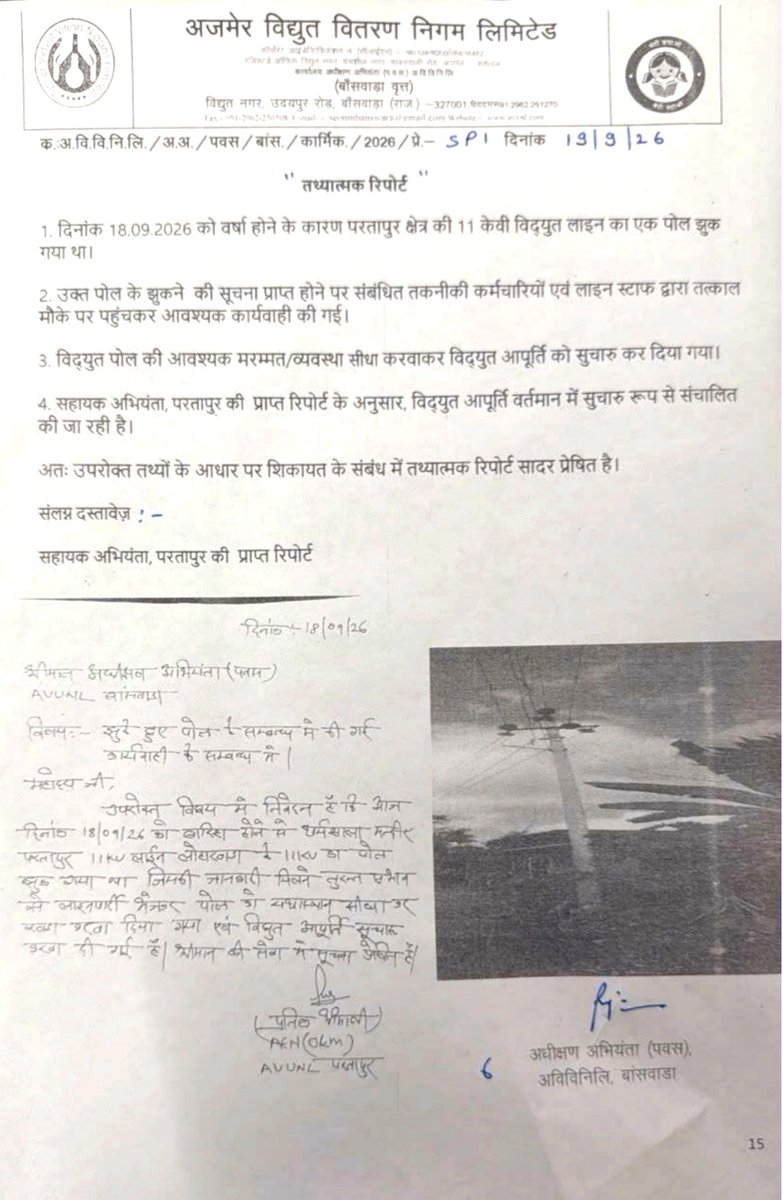 अजमेर विद्युत वितरण निगम लिमिटेड
(बाँसवाड़ा वृत्त)
विद्युत नगर, उदयपुर रोड, बाँसवाड़ा (राज) –327001
क.:अ.वि.वि.नि.लि. / अ.अ. / पवस / बांस. / कार्मिक. / 2026 / प्रे.– SP1 दिनांक 19/9/26
" तथ्यात्मक रिपोर्ट "
1. दिनांक 18.09.2026 को वर्षा होने के कारण परतापुर क्षेत्र की 11 केवी विद्युत लाइन का एक पोल झुक
गया था।
2. उक्त पोल के झुकने की सूचना प्राप्त होने पर संबंधित तकनीकी कर्मचारियों एवं लाइन स्टाफ द्वारा तत्काल
मौके पर पहुंचकर आवश्यक कार्यवाही की गई।
3. विद्युत पोल की आवश्यक मरम्मत/व्यवस्था सीधा करवाकर विद्युत आपूर्ति को सुचारु कर दिया गया।
4. सहायक अभियंता, परतापुर की प्राप्त रिपोर्ट के अनुसार, विद्युत आपूर्ति वर्तमान में सुचारु रूप से संचालित
की जा रही है।
अतः उपरोक्त तथ्यों के आधार पर शिकायत के संबंध में तथ्यात्मक रिपोर्ट सादर प्रेषित है।
संलग्न दस्तावेज़ :-
सहायक अभियंता, परतापुर की प्राप्त रिपोर्ट
दिनांक :- 18/09/26
श्रीमान अधीक्षण अभियंता (पवस)
AVVNL बांसवाडा
विषय:- झुके हुए पोल के सम्बन्ध में की गई
कार्यवाही के सम्बन्ध में।
महोदय जी,
उपरोक्त विषय में निवेदन है कि आज
दिनांक 18/09/26 को बारिश होने से धर्मशाला मन्दीर
परतापुर 11KV लाईन के 11KV का पोल
झुक गया था जिसकी जानकारी मिलने तुरन्त प्रभाव
से भेजकर पोल को यथास्थान सीधा कर
खडा करवा दिया गया एवं विद्युत आपूर्ति सूचारू
करवा दी गई है। श्रीमान की सेवा में सूचना प्रेषित है।
AEN(O&M)
AVVNL परतापुर
6
अधीक्षण अभियंता (पवस),
अविविनिलि, बांसवाडा
15